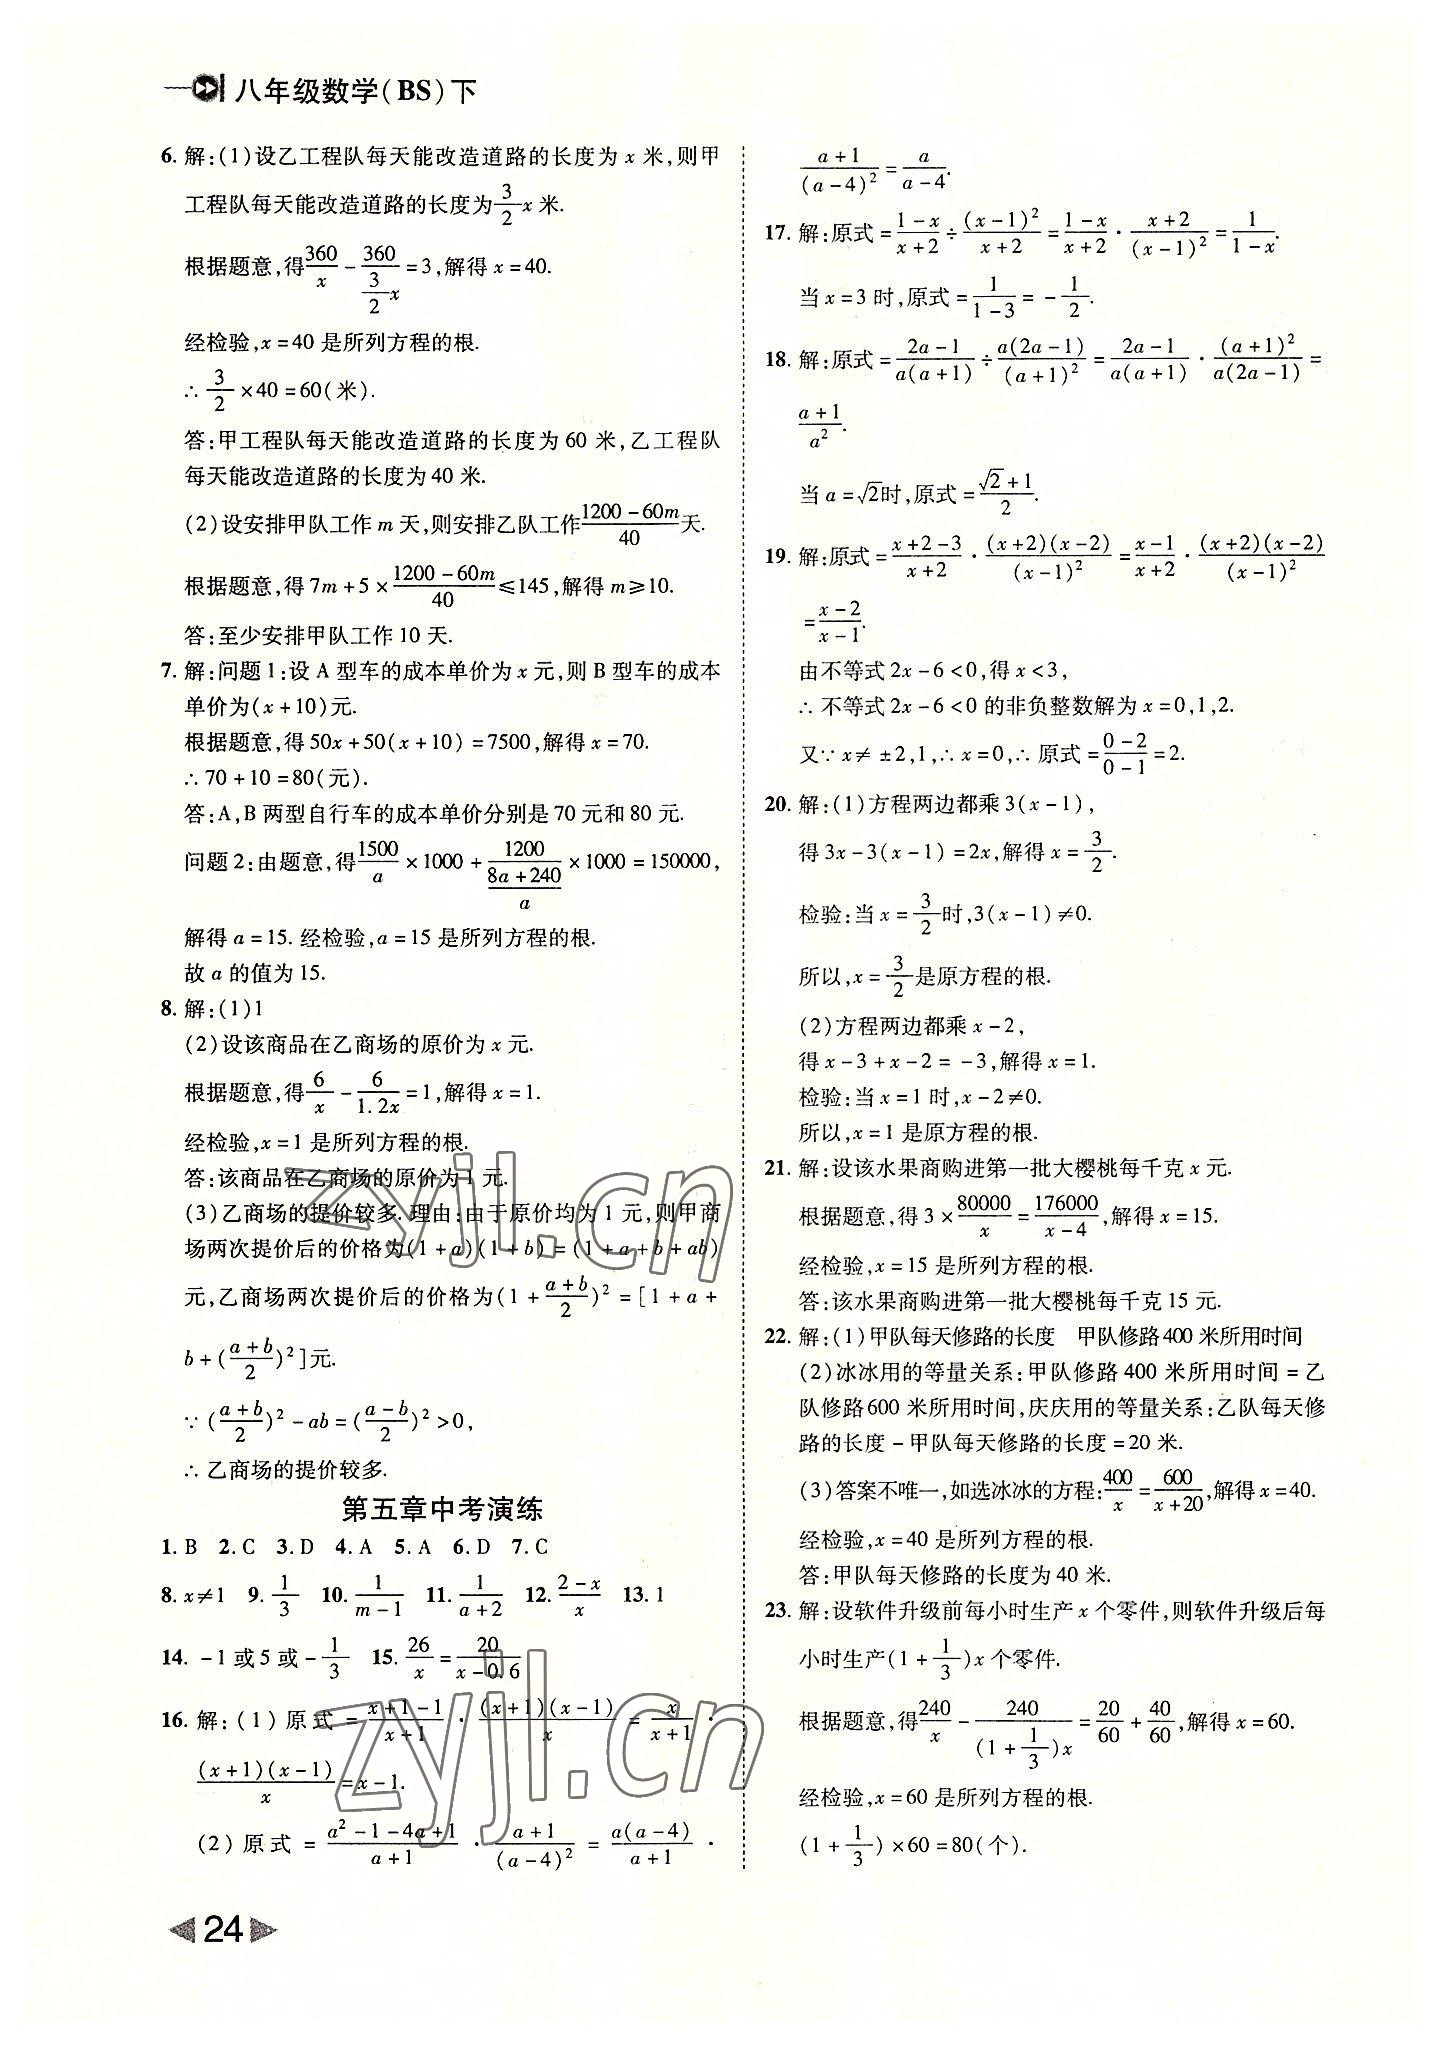 八年级数学(BS)下
6. 解:(1)设乙工程队每天能改造道路的长度为 x 米,则甲
工程队每天能改造道路的长度为 3/2 x 米.
根据题意,得 360/x - 360/(3/2 x) =3,解得 x=40.
经检验,x=40 是所列方程的根.
∴ 3/2 ×40=60(米).
答:甲工程队每天能改造道路的长度为 60 米,乙工程队
每天能改造道路的长度为 40 米.
(2)设安排甲队工作 m 天,则安排乙队工作 (1200-60m)/40 天.
根据题意,得 7m+5×(1200-60m)/40 ≤145,解得 m≥10.
答:至少安排甲队工作 10 天.
7. 解:问题 1:设 A 型车的成本单价为 x 元,则 B 型车的成本
单价为(x+10)元.
根据题意,得 50x+50(x+10)=7500,解得 x=70.
∴70+10=80(元).
答:A,B 两型自行车的成本单价分别是 70 元和 80 元.
问题 2:由题意,得 1500/a ×1000+1200/((8a+240)/a) ×1000=150000,
解得 a=15. 经检验,a=15 是所列方程的根.
故 a 的值为 15.
8. 解:(1)1
(2)设该商品在乙商场的原价为 x 元.
根据题意,得 6/x - 6/1.2x =1,解得 x=1.
经检验,x=1 是所列方程的根.
答:该商品在乙商场的原价为 1 元.
(3)乙商场的提价较多. 理由:由于原价均为 1 元,则甲商
场两次提价后的价格为(1+a)(1+b)=(1+a+b+ab)
元,乙商场两次提价后的价格为(1+(a+b)/2)²=[1+a+
b+((a+b)/2)²]元.
∵((a+b)/2)²-ab=((a-b)/2)²>0,
∴乙商场的提价较多.
第五章中考演练
1. B 2. C 3. D 4. A 5. A 6. D 7. C
8. x≠1 9. 1/3 10. 1/(m-1) 11. 1/(a+2) 12. (2-x)/x 13. 1
14. -1 或 5 或 -1/3 15. 26/x = 20/(x-0.6)
16. 解:(1)原式=(x+1-1)/(x+1) · (x+1)(x-1)/x = x/(x+1) ·
(x+1)(x-1)/x =x-1.
(2)原式=(a²-1-4a+1)/(a+1) · (a+1)/(a-4)² = a(a-4)/(a+1) ·
(a+1)/(a-4)² = a/(a-4).
17. 解:原式=(1-x)/(x+2) ÷ (x-1)²/(x+2) = (1-x)/(x+2) · (x+2)/(x-1)² = 1/(1-x).
当 x=3 时,原式=1/(1-3) = -1/2.
18. 解:原式=(2a-1)/a(a+1) ÷ a(2a-1)/(a+1)² = (2a-1)/a(a+1) · (a+1)²/a(2a-1) =
(a+1)/a².
当 a=√2时,原式=(√2+1)/2.
19. 解:原式=(x+2-3)/(x+2) · (x+2)(x-2)/(x-1)² = (x-1)/(x+2) · (x+2)(x-2)/(x-1)²
=(x-2)/(x-1).
由不等式 2x-6<0,得 x<3,
∴不等式 2x-6<0 的非负整数解为 x=0,1,2.
又∵x≠±2,1,∴x=0,∴原式=(0-2)/(0-1)=2.
20. 解:(1)方程两边都乘 3(x-1),
得 3x-3(x-1)=2x,解得 x=3/2.
检验:当 x=3/2 时,3(x-1)≠0.
所以,x=3/2 是原方程的根.
(2)方程两边都乘 x-2,
得 x-3+x-2=-3,解得 x=1.
检验:当 x=1 时,x-2≠0.
所以,x=1 是原方程的根.
21. 解:设该水果商购进第一批大樱桃每千克 x 元.
根据题意,得 3×80000/x = 176000/(x-4),解得 x=15.
经检验,x=15 是所列方程的根.
答:该水果商购进第一批大樱桃每千克 15 元.
22. 解:(1)甲队每天修路的长度 甲队修路 400 米所用时间
(2)冰冰用的等量关系:甲队修路 400 米所用时间=乙
队修路 600 米所用时间,庆庆用的等量关系:乙队每天修
路的长度-甲队每天修路的长度=20 米.
(3)答案不唯一,如选冰冰的方程:400/x = 600/(x+20),解得 x=40.
经检验,x=40 是所列方程的根.
答:甲队每天修路的长度为 40 米.
23. 解:设软件升级前每小时生产 x 个零件,则软件升级后每
小时生产(1+1/3)x 个零件.
根据题意,得 240/x - 240/(1+1/3)x = 20/60 + 40/60,解得 x=60.
经检验,x=60 是所列方程的根.
(1+1/3)×60=80(个).
24
zyjl.cn
zyjl.cn